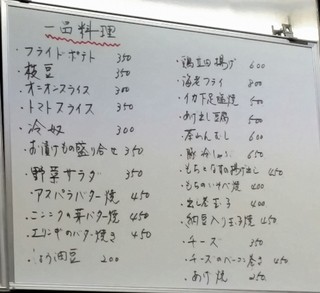 一品料理
・フライドポテト 350
・枝豆 350
・オニオンスライス 300
・トマトスライス 350
・冷奴 300
・お漬けもの盛り合せ 350
・野菜サラダ 350
・アスパラバター焼 450
・ニンニクの芽バター焼 450
・エリンギのバター焼き 450
・しょう油豆 200
・鶏立田揚げ 600
・海老フライ 800
・イカ下足塩焼 500
・あげ出し豆腐 500
・茶わんむし 600
・豚冷しゃぶ 650
・もちとなすの揚げだし 450
・もちのいそべ焼 400
・出し巻玉子 400
・納豆入り玉子焼 450
・チーズ 350
・チーズのベーコン巻き 450
・あげ焼 250